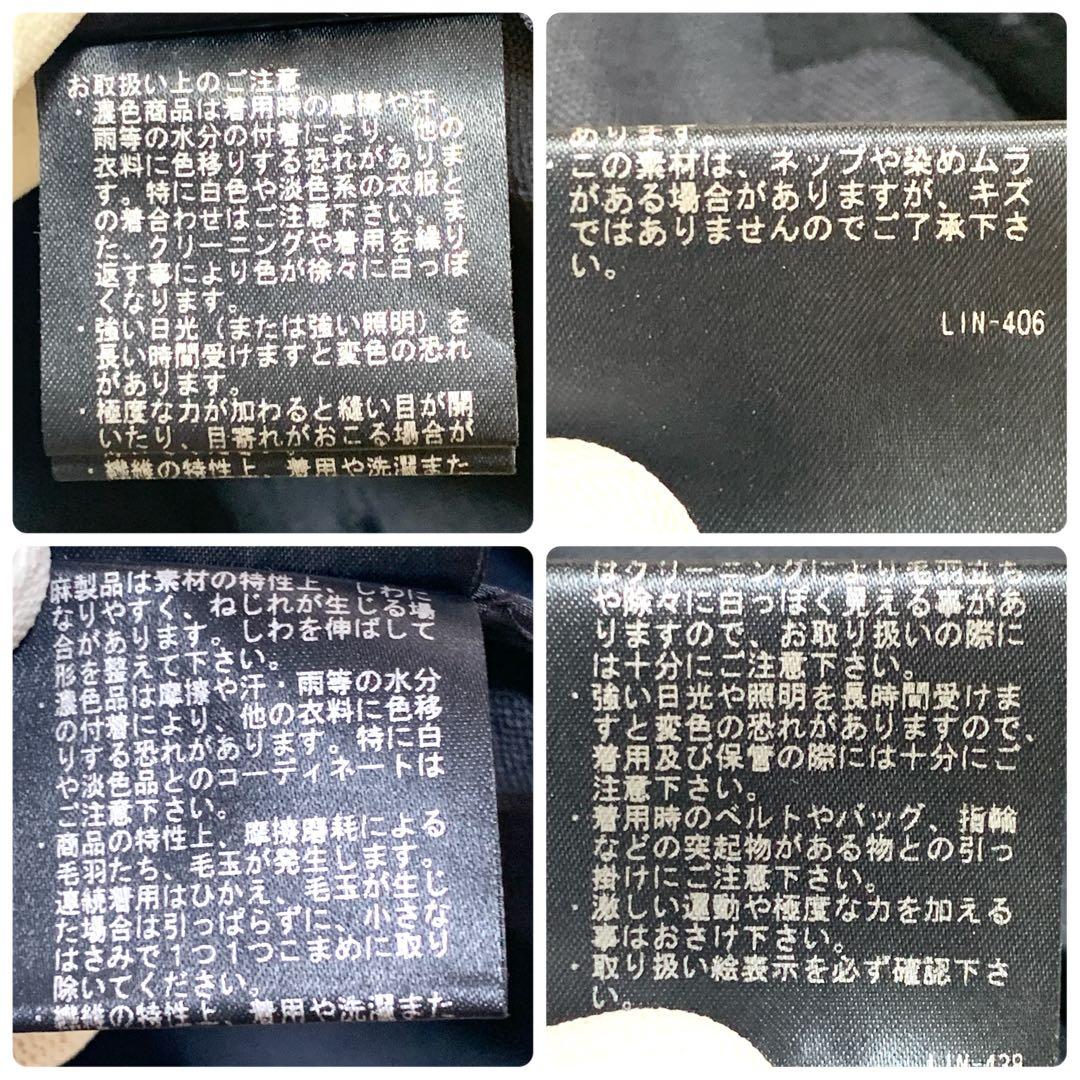 お取扱い上のご注意
・濃色商品は着用時の摩擦や汗、
雨等の水分の付着により、他の
衣料に色移りする恐れがありま
す。特に白色や淡色系の衣服と
の着合わせはご注意下さい。ま
た、クリーニングや着用を繰り
返す事により色が徐々に白っぽ
くなります。
・強い日光（または強い照明）を
長い時間受けますと変色の恐れ
があります。
・極度な力が加わると縫い目が開
いたり、目寄れがおこる場合が
・繊維の特性上、着用や洗濯また
あります。
この素材は、ネップや染めムラ
がある場合がありますが、キズ
ではありませんのでご了承下さ
い。
LIN-406
麻製品は素材の特性上、しわに
なりやすく、ねじれが生じる場
合があります。しわを伸ばして
形を整えて下さい。
濃色品は摩擦や汗・雨等の水分
の付着により、他の衣料に色移
りする恐れがあります。特に白
や淡色品とのコーディネートは
ご注意下さい。
・商品の特性上、摩擦磨耗による
毛羽たち、毛玉が発生します。
連続着用はひかえ、毛玉が生じ
た場合は引っぱらずに、小さな
はさみで１つ１つこまめに取り
除いてください。
・繊維の特性上、着用や洗濯また
はクリーニングにより毛羽立ち
や除々に白っぽく見える事があ
りますので、お取り扱いの際に
は十分にご注意下さい。
・強い日光や照明を長時間受けま
すと変色の恐れがありますので、
着用及び保管の際には十分にご
注意下さい。
・着用時のベルトやバッグ、指輪
などの突起物がある物との引っ
掛けにご注意下さい。
・激しい運動や極度な力を加える
事はおさけ下さい。
・取り扱い絵表示を必ず確認下さ
い。
LIN-439